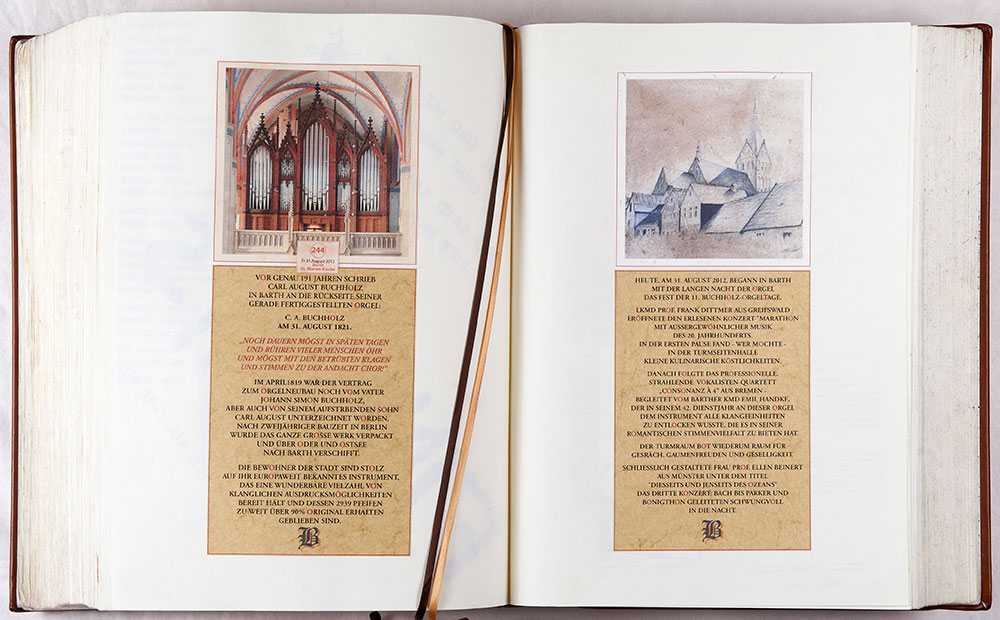 244
Fr 31.August 2012
Barth
St.-Marien-Kirche
VOR GENAU 191 JAHREN SCHRIEB
CARL AUGUST BUCHHOLZ
IN BARTH AN DIE RÜCKSEITE SEINER
GERADE FERTIGGESTELLTEN ORGEL:
C. A. BUCHHOLZ
AM 31. AUGUST 1821.
„NOCH DAUERN MÖGST IN SPÄTEN TAGEN
UND RÜHREN VIELER MENSCHEN OHR
UND MÖGST MIT DEN BETRÜBTEN KLAGEN
UND STIMMEN ZU DER ANDACHT CHOR!"
IM APRIL1819 WAR DER VERTRAG
ZUM ORGELNEUBAU NOCH VOM VATER
JOHANN SIMON BUCHHOLZ,
ABER AUCH VON SEINEM AUFSTRBENDEN SOHN
CARL AUGUST UNTERZEICHNET WORDEN.
NACH ZWEIJÄHRIGER BAUZEIT IN BERLIN
WURDE DAS GANZE GROSSE WERK VERPACKT
UND ÜBER ODER UND OSTSEE
NACH BARTH VERSCHIFFT.
DIE BEWOHNER DER STADT SIND STOLZ
AUF IHR EUROPAWEIT BEKANNTES INSTRUMENT,
DAS EINE WUNDERBARE VIELZAHL VON
KLANGLICHEN AUSDRUCKSMÖGLICHKEITEN
BEREIT HÄLT UND DESSEN 2939 PFEIFEN
ZU WEIT ÜBER 90% ORIGINAL ERHALTEN
GEBLIEBEN SIND.
B
HEUTE, AM 31. AUGUST 2012, BEGANN IN BARTH
MIT DER LANGEN NACHT DER ORGEL
DAS FEST DER 11. BUCHHOLZ-ORGELTAGE.
LKMD PROF. FRANK DITTMER AUS GREIFSWALD
ERÖFFNETE DEN ERLESENEN KONZERT "MARATHON
MIT AUSSERGEWÖHNLICHER MUSIK
DES 20. JAHRHUNDERTS.
IN DER ERSTEN PAUSE FAND - WER MOCHTE -
IN DER TURMSEITENHALLE
KLEINE KULINARISCHE KÖSTLICHKEITEN.
DANACH FOLGTE DAS PROFESSIONELLE,
STRAHLENDE VOKALISTEN-QUARTETT
„CONSONANZ À 4" AUS BREMEN -
BEGLEITET VOM BARTHER KMD EMIL HANDKE,
DER IN SEINEM 42. DIENSTJAHR AN DIESER ORGEL
DEM INSTRUMENT ALLE KLANGFEINHEITEN
ZU ENTLOCKEN WUSSTE, DIE ES IN SEINER
ROMANTISCHEN STIMMENVIELFALT ZU BIETEN HAT.
DER TURMRAUM BOT WIEDERUM RAUM FÜR
GESRÄCH, GAUMENFREUDEN UND GESELLIGKEIT.
SCHLIESSLICH GESTALTETE FRAU PROF. ELLEN BEINERT
AUS MÜNSTER UNTER DEM TITEL
"DIESSEITS UND JENSEITS DES OZEANS"
DAS DRITTE KONZERT; BACH BIS PARKER UND
BONIGTHON GELEITETEN SCHWUNGVOLL
IN DIE NACHT.
B